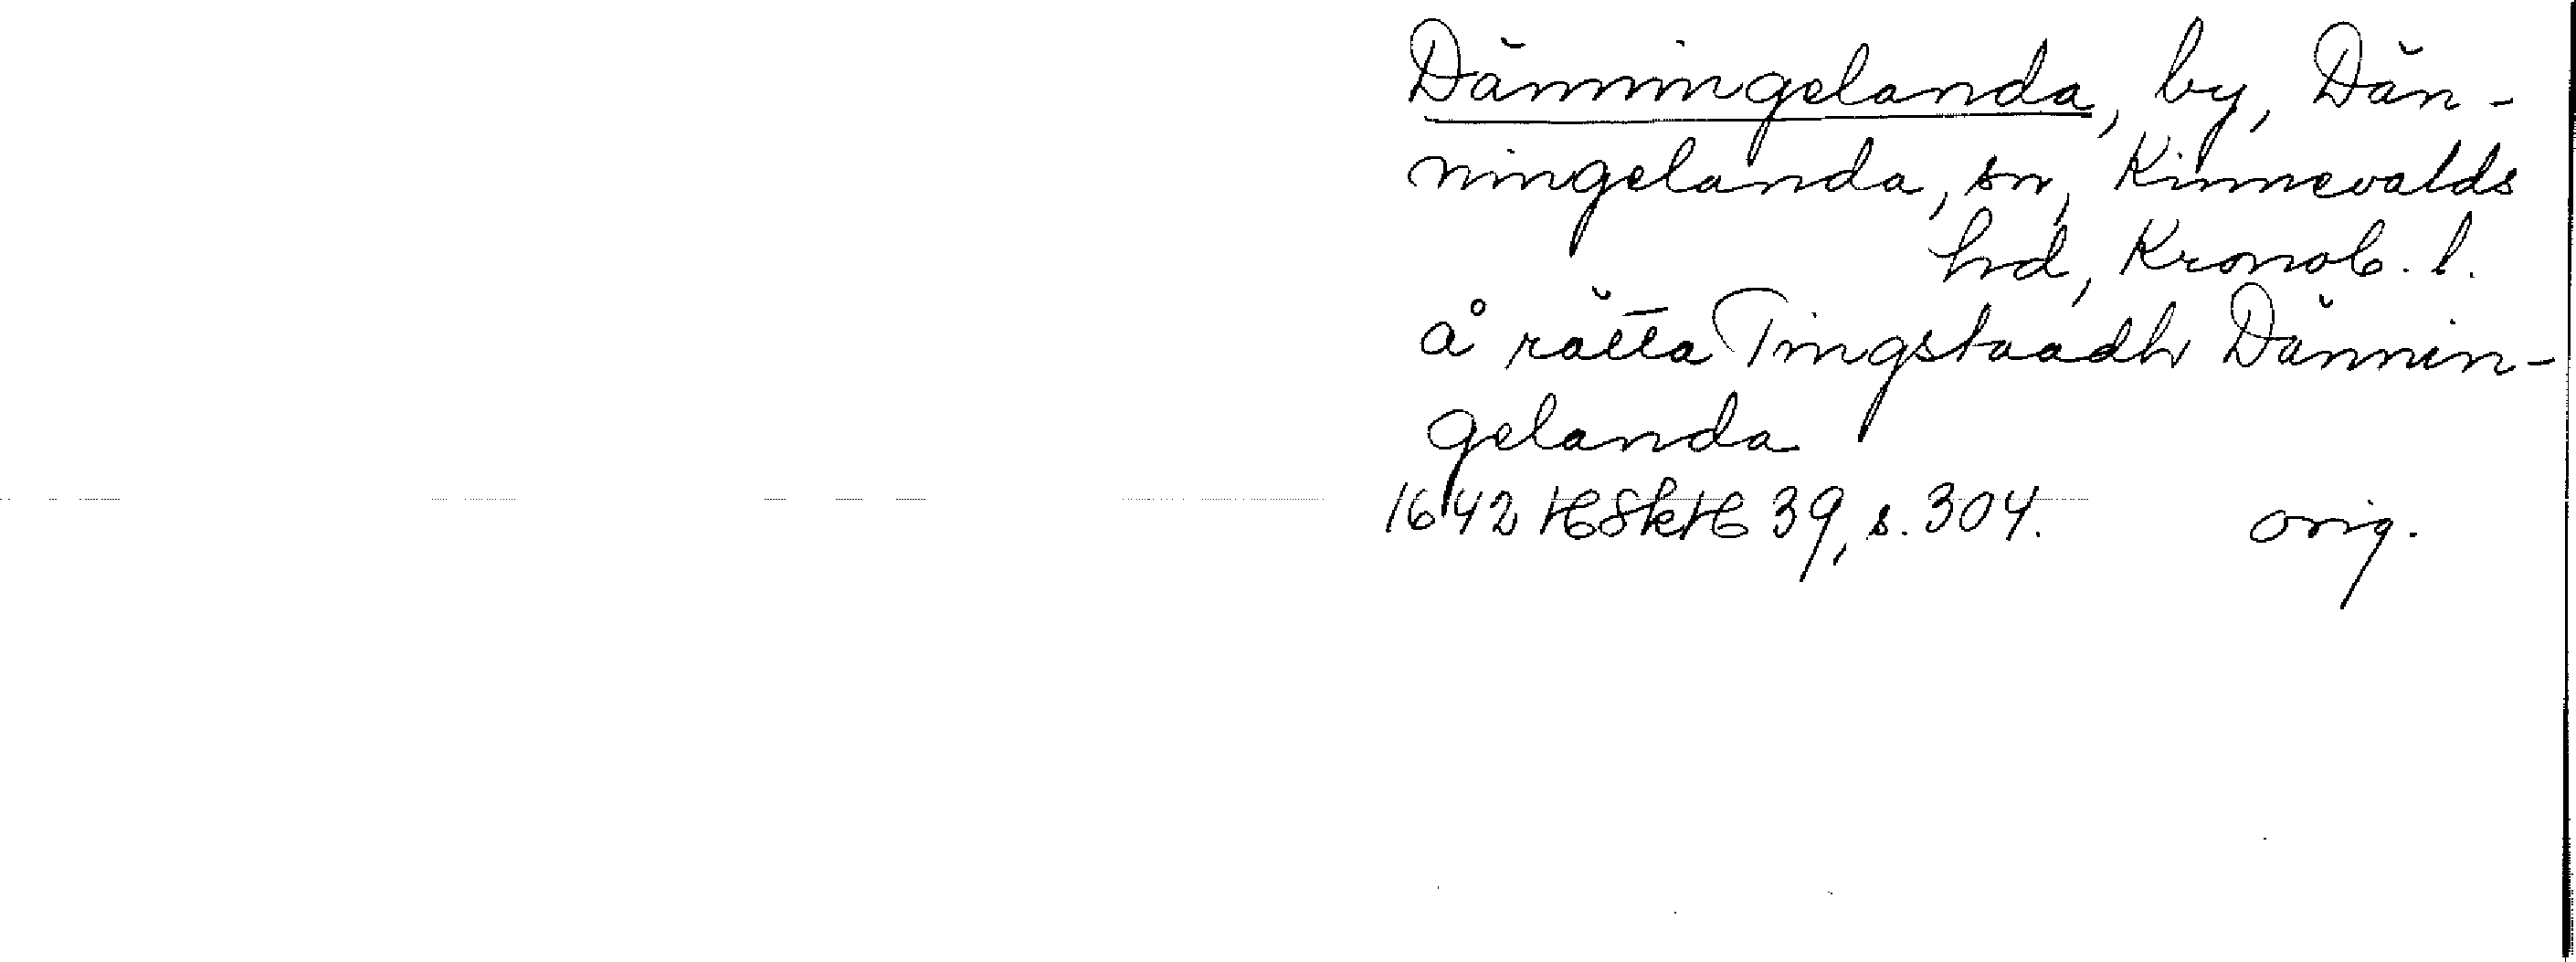 Dänningelanda, by, Dän-
ningelanda, sn, Kinnevalds
hd, Kronob. l.
å rätta Tingstaadh Dännin-
gelanda
1642 HSkH 39, s. 304. orig.